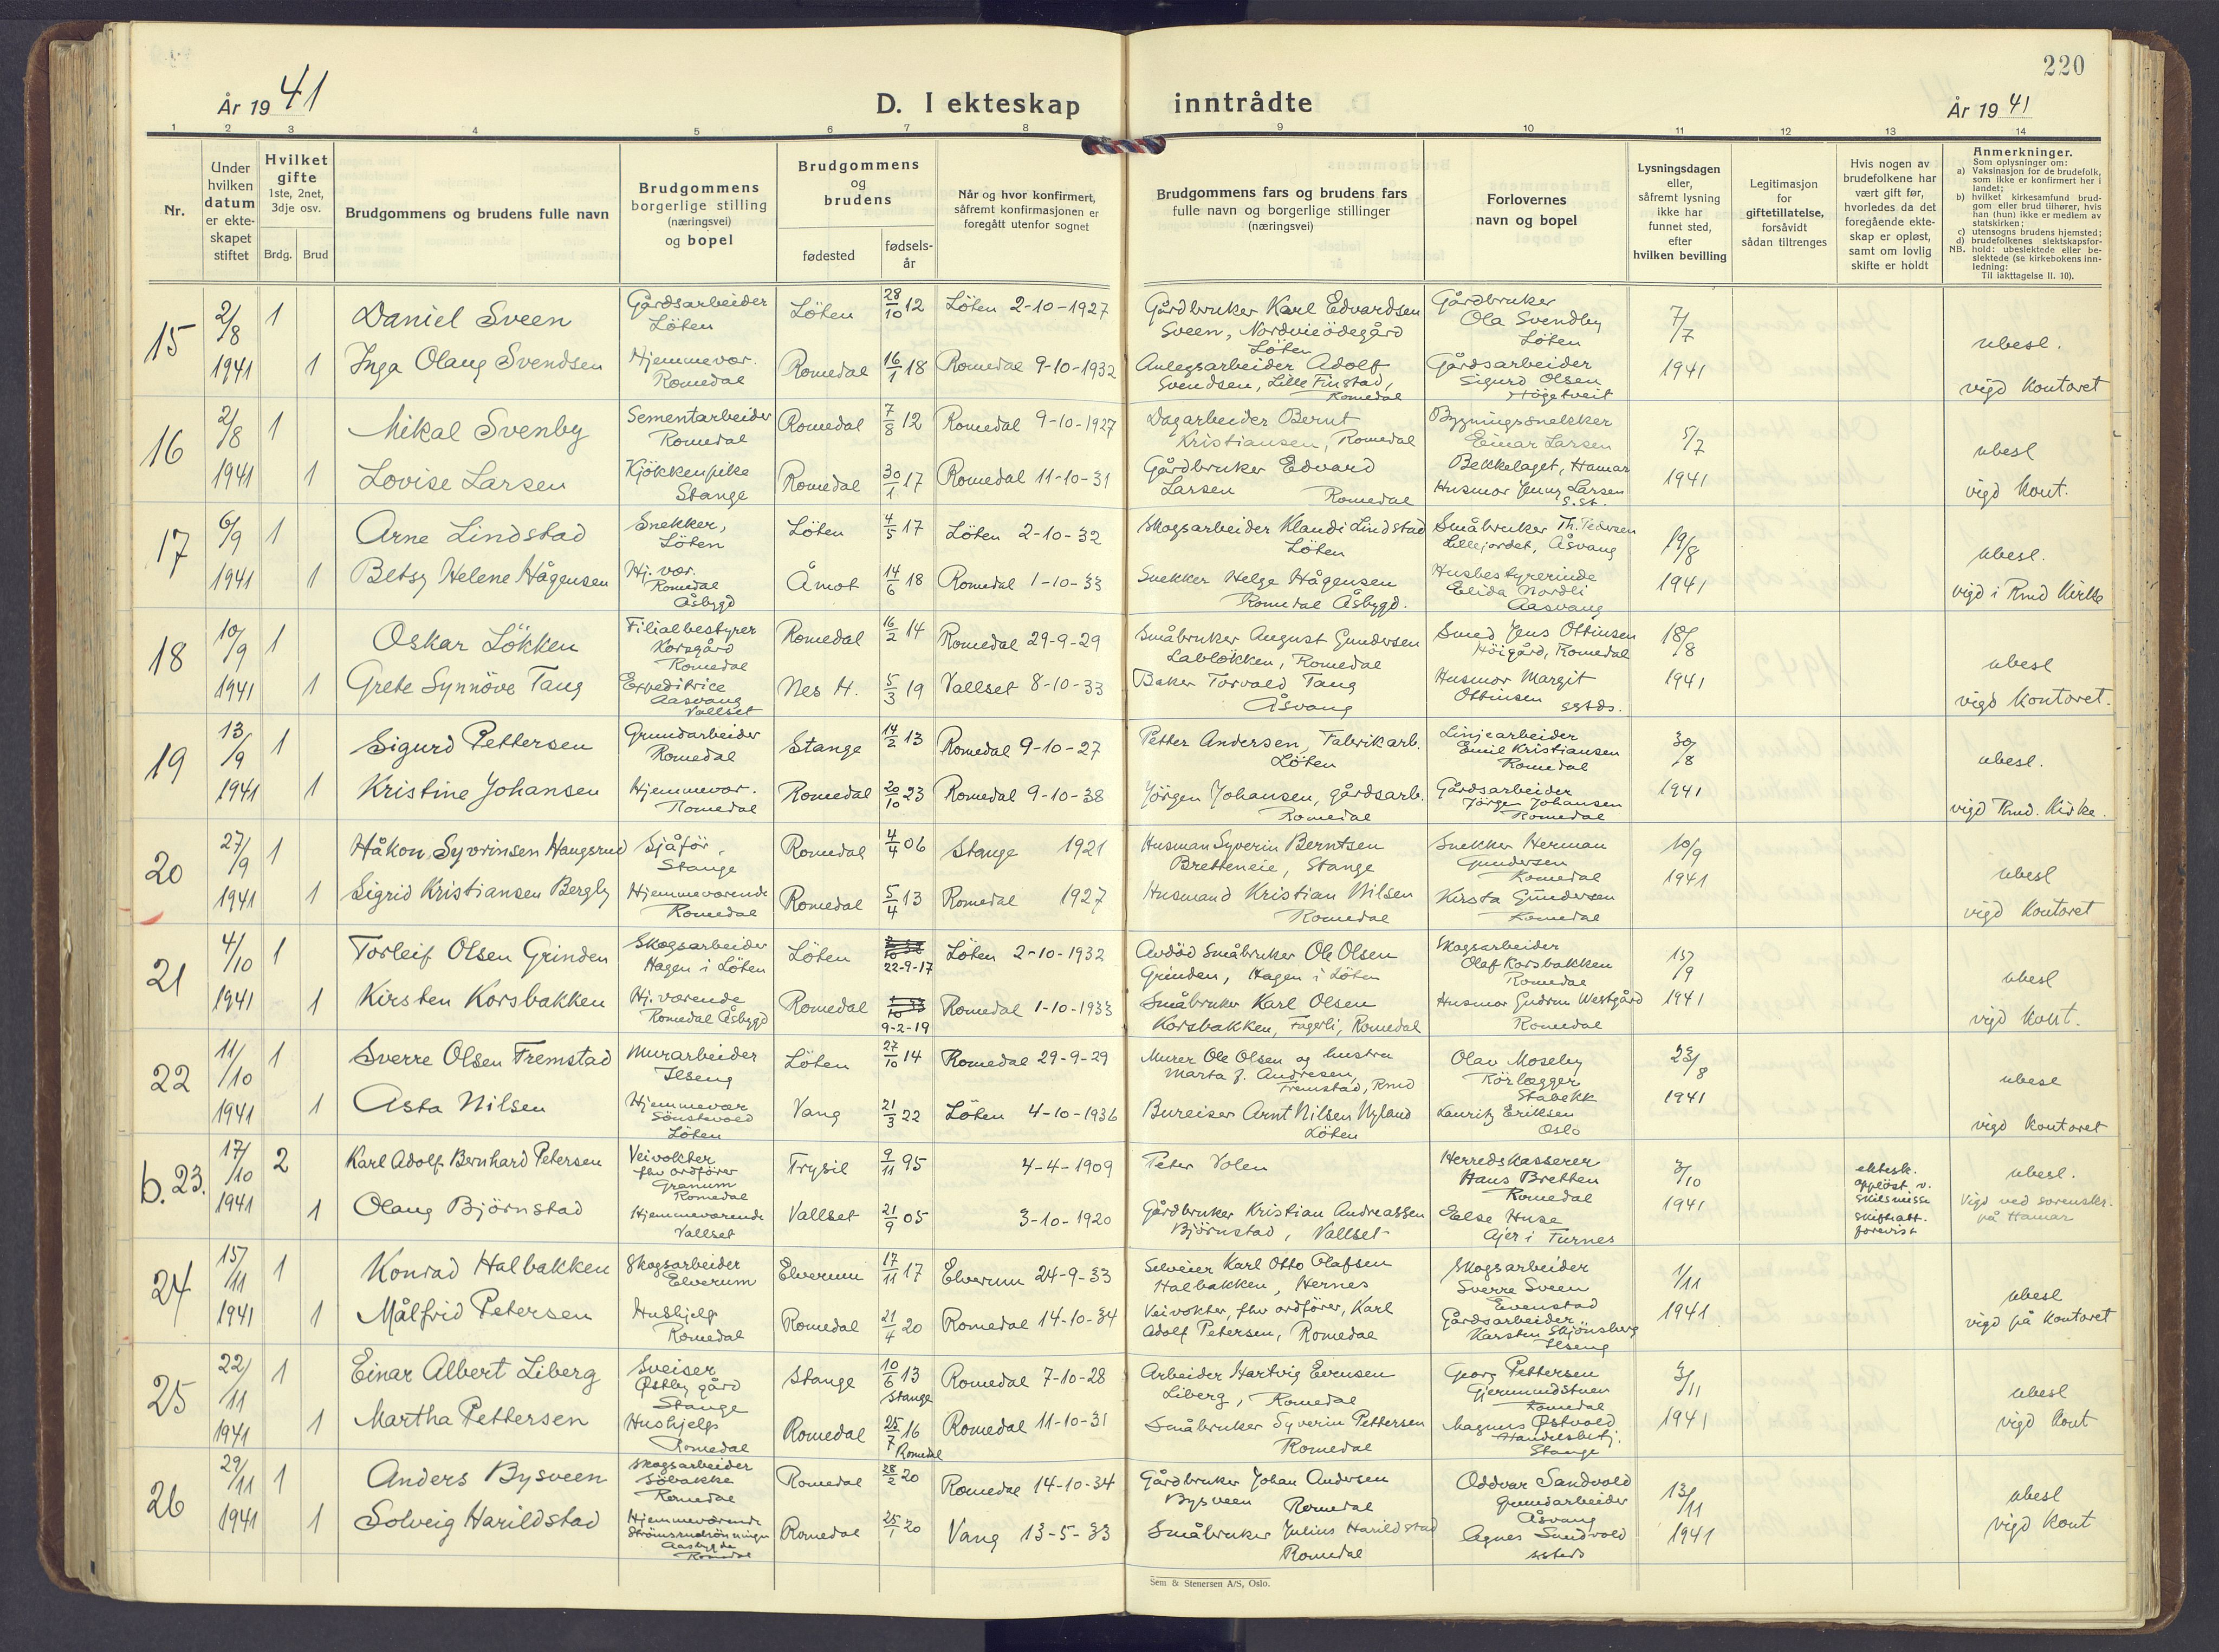 220
År 19 41
D. I ekteskap inntrådte
År 19 41
1 2 3 4 5 6 7 8 9 10 11 12 13 14
Nr.
Under hvilken datum er ekteskapet stiftet
Hvilket gifte 1ste, 2net, 3dje osv.
Brdg. Brud
Brudgommens og brudens fulle navn
Brudgommens borgerlige stilling (næringsvei) og bopel
Brudgommens og brudens
fødested
fødsels-år
Når og hvor konfirmert, såfremt konfirmasjonen er foregått utenfor sognet
Brudgommens fars og brudens fars fulle navn og borgerlige stillinger (næringsvei)
Forlovernes navn og bopel
Lysningsdagen eller, såfremt lysning ikke har funnet sted, efter hvilken bevilling
Legitimasjon for giftetillatelse, forsåvidt sådan tiltrenges
Hvis nogen av brudefolkene har vært gift før, hvorledes da det foregående ekteskap er opløst, samt om lovlig skifte er holdt
Anmerkninger.
Som oplysninger om:
a) Vaksinasjon for de brudefolk, som ikke er konfirmert her i landet;
b) hvilket kirkesamfund brudgom eller brud tilhører, hvis han (hun) ikke er medlem av statskirken;
c) utensogns brudens hjemsted;
d) brudefolkenes slektskapsforhold: ubeslektede eller beslektede (se kirkebokens innledning:
NB. Til iakttagelse II. 10).
15 2/8 1941 1 Daniel Sveen Gårdsarbeider Löten Löten 28/10 12 Löten 2-10-1927 Gårdbruker Karl Edvardsen Sveen, Nordvieödegård Löten Gårdbruker Ola Svendby Löten 7/7 1941 ubesl.
1 Inga Olaug Svendsen Hjemmevær. Romedal Romedal 16/1 18 Romedal 9-10-1932 Anlegsarbeider Adolf Svendsen, Lille Finstad, Romedal Gårdsarbeider Sigurd Olsen Högetveit vigd kontoret
16 2/8 1941 1 Mikal Svenby Sementarbeider Romedal Romedal 7/8 12 Romedal 9-10-1927 Dagarbeider Bernt Kristiansen, Romedal Bygningssnekker Einar Larsen Bekkelaget, Hamar 5/7 1941 ubesl
1 Lovise Larsen Kjökkenpike Stange Romedal 30/1 17 Romedal 11-10-31 Gårdbruker Edvard Larsen Romedal Husmor Jenny Larsen s.st. vigd kont.
17 6/9 1941 1 Arne Lindstad Snekker, Löten Löten 4/5 17 Löten 2-10-32 Skogsarbeider Klandi Lindstad Löten Småbruker Th. Pedersen Lillejordet, Åsvang 19/8 1941 ubesl.
1 Betsy Helene Hågensen Hj. vær. Romedal Åsbygd Åmot 14/6 18 Romedal 1-10-33 Snekker Helge Hågensen Romedal Åsbygd. Husbestyrerinde Elida Nordli Aasvang vigd i Rmd Kirke
18 10/9 1941 1 Oskar Lökken Filialbestyrer Korsgård Romedal Romedal 16/2 14 Romedal 29-9-29 Småbruker August Gundersen Lablökken, Romedal Smed Jens Ottinsen Höigård, Romedal 18/8 1941 ubesl
1 Grete Synnöve Tang Expeditrice Aasvang Vallset Nes H. 5/3 19 Vallset 8-10-33 Baker Torvald Tang Åsvang Husmor Margit Ottinsen sstds. vigd kontoret.
19 13/9 1941 1 Sigurd Pettersen Grundarbeider Romedal Stange 14/2 13 Romedal 9-10-27 Petter Andersen, Fabrikarb. Löten Linjearbeider Emil Kristiansen Romedal 30/8 1941 ubesl.
1 Kristine Johansen Hjemmevær. Romedal Romedal 20/10 23 Romedal 9-10-38 Jörgen Johansen, gårdsarb. Romedal Gårdsarbeider Jörgen Johansen Romedal vigd Rmd. Kirke.
20 27/9 1941 1 Håkon Syvrinsen Haugsrud Sjåför, Stange Romedal 4/4 06 Stange 1921 Husman Syverin Berntsen Bretteneie, Stange Snekker Herman Gundersen Romedal 10/9 1941 ubesl
1 Sigrid Kristiansen Bergby Hjemmeværende Romedal Romedal 5/4 13 Romedal 1927 Husmand Kristian Nilsen Romedal Kirsta Gundersen Romedal vigd kontoret
21 4/10 1941 1 Torleif Olsen Grinden Skogsarbeider Hagen i Löten Löten 22-9-17 Löten 2-10-1932 Avdöd Småbruker Ole Olsen Grinden, Hagen i Löten Skogsarbeider Olaf Korsbakken Romedal 15/9 1941 ubesl
1 Kirsten Korsbakken Hj. værende Romedal Åsbygd Romedal 9-2-19 Romedal 1-10-1933 Småbruker Karl Olsen Korsbakken, Fagerli, Romedal Husmor Gudrun Westgård Romedal vigd kont.
22 11/10 1941 1 Sverre Olsen Fremstad Murarbeider Ilseng Löten 27/10 14 Romedal 29-9-29 Murer Ole Olsen og hustru Marta J. Andresen, Fremstad, Rmd Olav Moseby Rörlegger Stabekk 23/8 1941 ubesl
1 Asta Nilsen Hjemmevær Sönstevold Löten Vang 21/3 22 Löten 4-10-1936 Bureiser Arnt Nilsen Nyland Löten Lauritz Eriksen Oslo vigd kontoret
b. 23. 17/10 1941 2 Karl Adolf Bernhard Petersen Veivokter fhv ordförer Granum Romedal Trysil 9/11 95 4-4-1909 Peter Volen Herredskasserer Hans Bretten Romedal 3/10 1941 ektesk. opplöst v. skilsmisse skifteatt. forevist ubesl.
1 Olaug Björnstad Hjemmeværende Vallset Vallset 21/9 05 3-10-1920 Gårdbruker Kristian Andreassen Björnstad, Vallset Else Huse Ajer i Furnes Vigd ved sorenskr. på Hamar
24 15/11 1941 1 Konrad Halbakken Skogsarbeider Elverum Elverum 17/11 17 Elverum 24-9-33 Selveier Karl Otto Olafsen Halbakken, Hernes Skogsarbeider Sverre Sveen Evenstad 1/11 1941 ubesl
1 Målfrid Petersen Hushjelp Romedal Romedal 21/4 20 Romedal 14-10-34 Veivokter, fhv ordförer, Karl Adolf Petersen, Romedal Gårdsarbeider Karsten Skjönsberg Ilseng vigd på kontoret
25 22/11 1941 1 Einar Albert Liberg Sveiser Østby gård Stange Stange 10/6 13 Stange Romedal 7-10-28 Arbeider Hartvig Evensen Liberg, Romedal Georg Pettersen Gjermundstuen Romedal 3/11 1941 ubesl
1 Martha Pettersen Hushjelp Romedal Romedal 25/7 16 Romedal Romedal 11-10-31 Småbruker Syverin Pettersen Romedal Magnus Østvold Handelsbetj. Stange vigd kont
26 29/11 1941 1 Anders Bysveen Skogsarbeider Söbakke Romedal Romedal 28/2 20 Romedal 14-10-34 Gårdbruker Johan Andersen Bysveen Romedal Oddvar Sandvold Grundarbeider Åsvang 13/11 1941 ubesl
1 Solveig Harildstad Hjemmeværende Aasbygda Romedal Romedal 25/1 20 Vang 13-5-33 Småbruker Julius Harildstad Romedal Agnes Sandvold ssteds vigd kont
Sem & Stenersen A/S, Oslo.